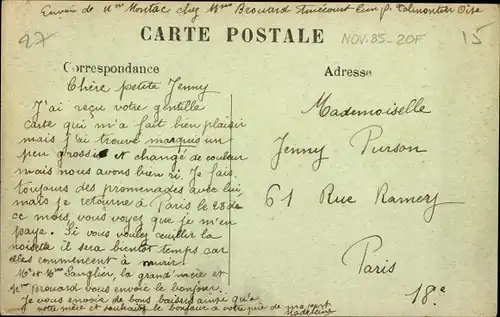 Envoi de Mme Montac chez Mme Brouard Oise
27
CARTE POSTALE
NOV.85-20F
15
Correspondance
Adresse
Chère petite Jenny
J'ai reçu votre gentille
carte qui m'a fait bien plaisir
mais j'ai trouvé marquis un
peu grossi et changé de couleur
mais nous avons bien ri. Je fais
toujours des promenades avec lui
mais je retourne à Paris le 28 de
ce mois, vous voyez que je m'en
paye. Si vous voulez cueillir la
noisette il sera bientôt temps car
elles commencent à murir.
Mr et Mme Langlier, la grand'mère et
Mme Brouard vous envoie le bonjour.
Je vous envoie de bons baisers ainsi qu'à
votre mère et souhaitez le bonjour à votre père de ma part
Madeleine
Mademoiselle
Jenny Purson
61 Rue Ramey
Paris
18.e